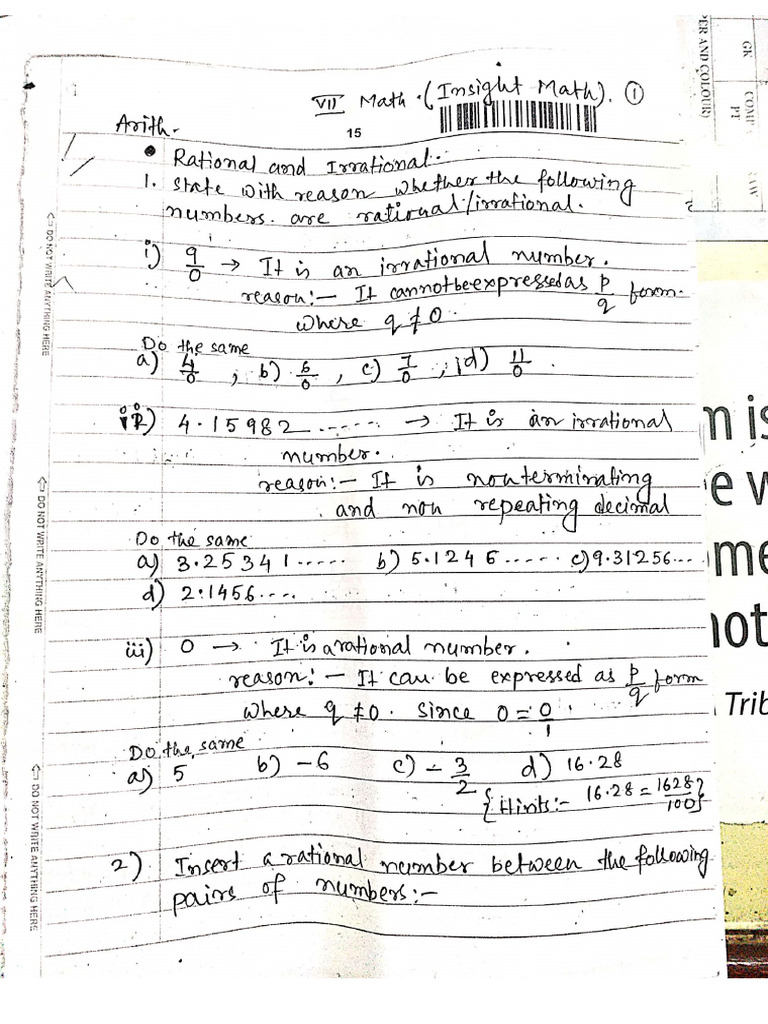 VII Math. (Insight Math). ①
Arith.
15
• Rational and Irrational.
1. State with reason whether the following
numbers are rational/irrational.
i) 9/0 → It is an irrational number.
reason:- It cannot be expressed as p/q form.
where q ≠ 0.
Do the same
a) 4/0 , b) 6/0 , c) 7/0 , d) 11/0
ii) 4.15982 ...... → It is an irrational
number.
reason:- It is nonterminating
and non repeating decimal
Do the same
a) 3.25341..... b) 5.1246..... c) 9.31256...
d) 2.1456....
iii) 0 → It is a rational number.
reason:- It can be expressed as p/q form
where q ≠ 0. Since 0 = 0/1
Do the same
a) 5 b) -6 c) -3/2 d) 16.28
{Hints:- 16.28 = 1628/100}
2) Insert a rational number between the following
pairs of numbers:-
DO NOT WRITE ANYTHING HERE
DO NOT WRITE ANYTHING HERE
DO NOT WRITE ANYTHING HERE
PER AND COLOUR)
GK
COMP
PT
n is
e w
me
not
Trib